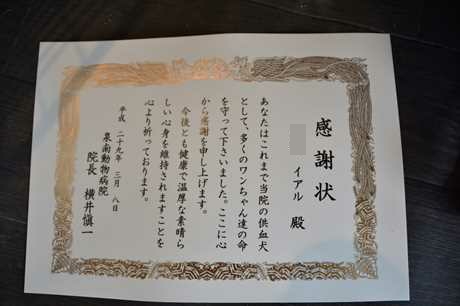 感謝状
イアル 殿
あなたはこれまで当院の供血犬
として、多くのワンちゃん達の命
を守って下さいました。ここに心
から感謝を申し上げます。
今後とも健康で温厚な素晴ら
しい心身を維持されますことを
心より祈っております。
平成 二十九年 三月 八日
泉南動物病院
院長 横井慎一